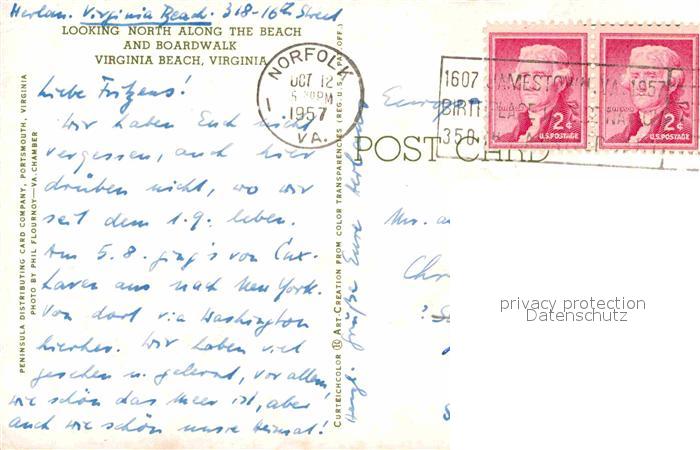 Herlan. Virginia Beach. 318-16th Street
LOOKING NORTH ALONG THE BEACH
AND BOARDWALK
VIRGINIA BEACH, VIRGINIA
Liebe Fritzens!
Wir haben Euch nicht
vergessen, auch hier
drüben nicht, wo wir
seit dem 1.9. leben.
Am 5.8. ging's von Cux-
haven aus nach New York.
Von dort via Washington
hierher. Wir haben viel
gesehen u. gelernt, vor allem
wie schön das Meer ist, aber
auch wie schön unsre Heimat!
PENINSULA DISTRIBUTING CARD COMPANY, PORTSMOUTH, VIRGINIA
PHOTO BY PHIL FLOURNOY—VA. CHAMBER
CURTEICHCOLOR ART-CREATION FROM COLOR TRANSPARENCIES (REG. U.S.A. PAT. OFF.)
Herzl. Grüße Eure
NORFOLK
OCT 12
PM
1957
VA.
1607 JAMESTOWN, VA. 1957
BIRTHPLACE
350
2¢
U.S. POSTAGE
2¢
U.S. POSTAGE
POST CARD
Mrs.
Chr
privacy protection
Datenschutz